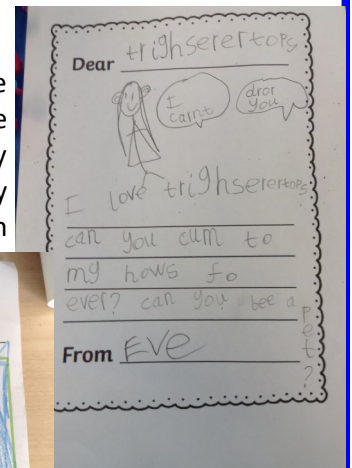 Dear trighserertops
I
carnt
dror
you
I love trighserertops
can you cum to
my hows fo
ever? can you bee a
pet?
From Eve